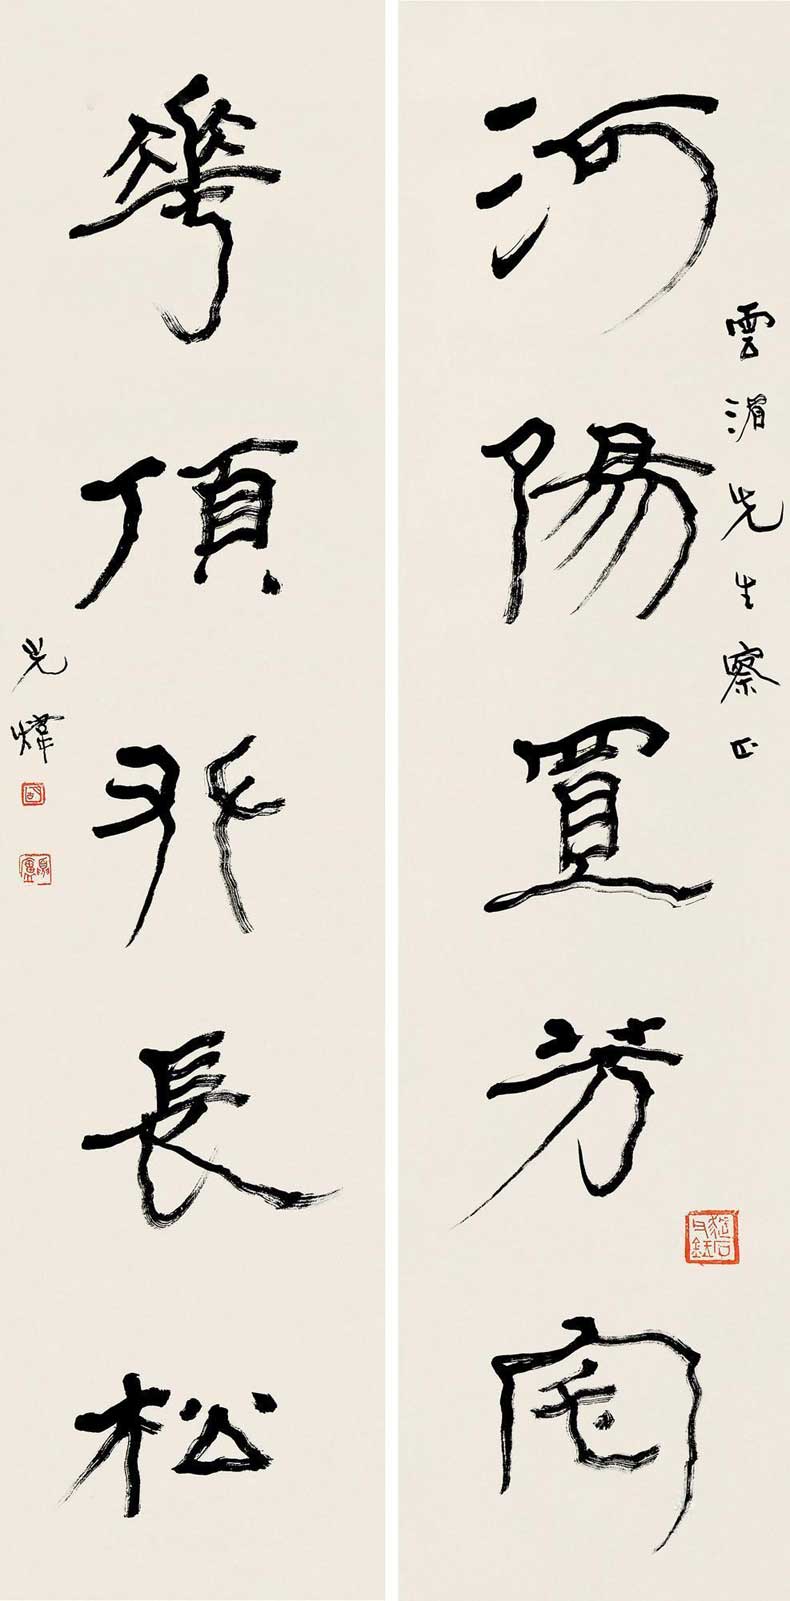 河陽置芳宅
雲湄先生察正
華頂長松
光煒